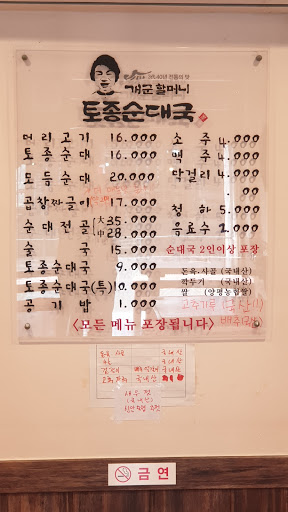 개군할머니
토종순대국
머리고기 16.000
토종순대 16.000
모듬순대 20.000
곱창짜글이 17.000
순대전골 大 35.000
中 28.000
술국 15.000
토종순대국 9.000
토종순대국(특) 10.000
공기밥 1.000
소주 4.000
맥주 4.000
막걸리 4.000
청하 5.000
음료수 2.000
순대국 2인이상 포장
돈육.사골 (국내산)
깍두기 (국내산)
쌀 (양평농협쌀)
고추가루 (국산)
<모든 메뉴 포장됩니다>
국내산
국내산
국내산
고추가루 국내산
새우젓
(국내산)
금연